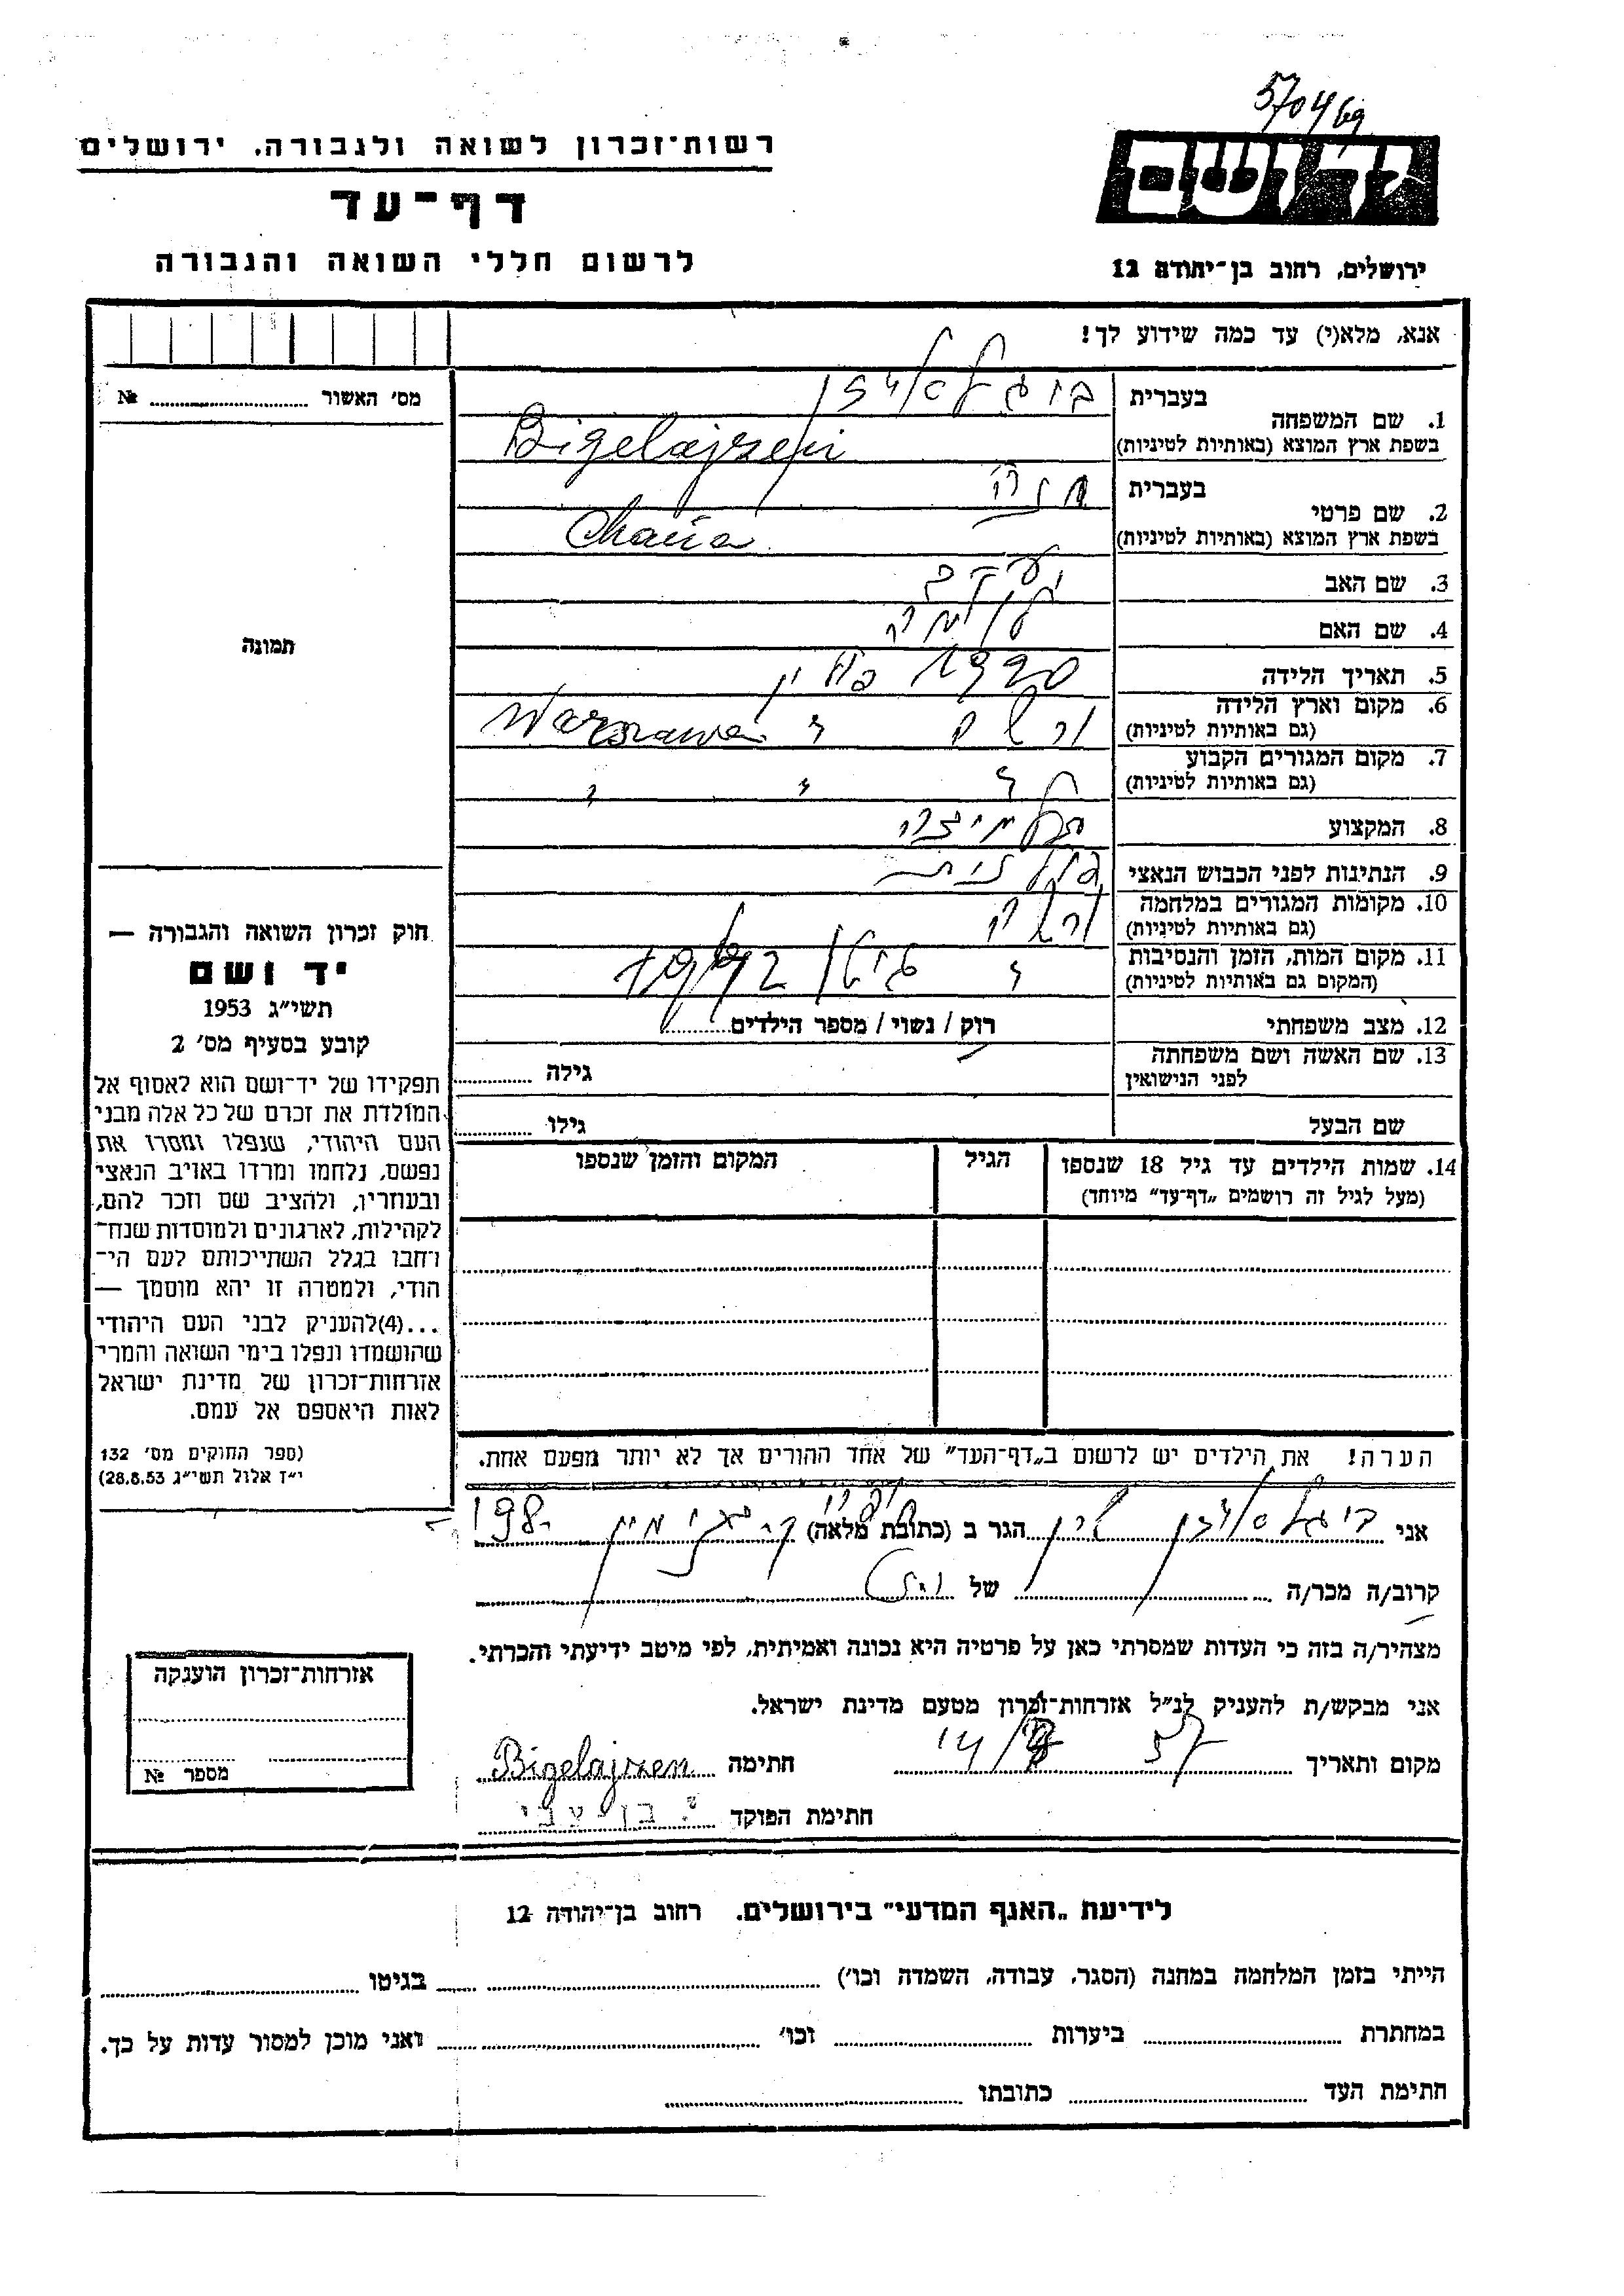 5704/69
רשות־זכרון לשואה ולגבורה. ירושלים
דף־עד
לרשום חללי השואה והגבורה
יד ושם
ירושלים, רחוב בן־יהודה 12
אנא, מלא(י) עד כמה שידוע לך!
מס׳ האשור № ....................
תמונה
חוק זכרון השואה והגבורה —
יד ושם
תשי״ג 1953
קובע בסעיף מס׳ 2
תפקידו של יד־ושם הוא לאסוף אל
המולדת את זכרם של כל אלה מבני
העם היהודי, שנפלו ומסרו את
נפשם, נלחמו ומרדו באויב הנאצי
ובעוזריו, ולהציב שם וזכר להם,
לקהילות, לארגונים ולמוסדות שנח־
רחבו בגלל השתייכותם לעם הי־
הודי, ולמטרה זו יהא מוסמך —
...(4)להעניק לבני העם היהודי
שהושמדו ונפלו בימי השואה והמרי
אזרחות־זכרון של מדינת ישראל
לאות היאספם אל עמם.
(ספר החוקים מס׳ 132
י״ז אלול תשי״ג 28.8.53)
1. שם המשפחה
בעברית
בשפת ארץ המוצא (באותיות לטיניות) Bigelajzen
2. שם פרטי
בעברית חנה
בשפת ארץ המוצא (באותיות לטיניות) Chana
3. שם האב יעקב
4. שם האם
5. תאריך הלידה 1920
6. מקום וארץ הלידה
(גם באותיות לטיניות) ורשה Warszawa
7. מקום המגורים הקבוע
(גם באותיות לטיניות)
8. המקצוע תלמידה
9. הנתינות לפני הכבוש הנאצי פולנית
10. מקומות המגורים במלחמה
(גם באותיות לטיניות) ורשה
11. מקום המות, הזמן והנסיבות
(המקום גם באותיות לטיניות) גיטו 1942
12. מצב משפחתי רוק / נשוי / מספר הילדים..........
13. שם האשה ושם משפחתה
לפני הנישואין גילה ..........
שם הבעל גילו ..........
14. שמות הילדים עד גיל 18 שנספו
(מעל לגיל זה רושמים „דף־עד” מיוחד)
הגיל
המקום והזמן שנספו
הערה! את הילדים יש לרשום ב„דף־העד” של אחד ההורים אך לא יותר מפעם אחת.
אני הגר ב (כתובת מלאה) ק. בנימין 198
קרוב/ה מכר/ה .......... של ..........
מצהיר/ה בזה כי העדות שמסרתי כאן על פרטיה היא נכונה ואמיתית, לפי מיטב ידיעתי והכרתי.
אני מבקש/ת להעניק לנ״ל אזרחות־זכרון מטעם מדינת ישראל.
מקום ותאריך 57 14/ חתימה Bigelajzen
חתימת הפוקד י. בן־צבי
אזרחות־זכרון הוענקה
מספר №
לידיעת „האגף המדעי” בירושלים. רחוב בן־יהודה 12
הייתי בזמן המלחמה במחנה (הסגר, עבודה, השמדה וכו׳) .......... בגיטו ..........
במחתרת .......... ביערות .......... וכו׳ .......... ואני מוכן למסור עדות על כך.
חתימת העד .......... כתובתו ..........